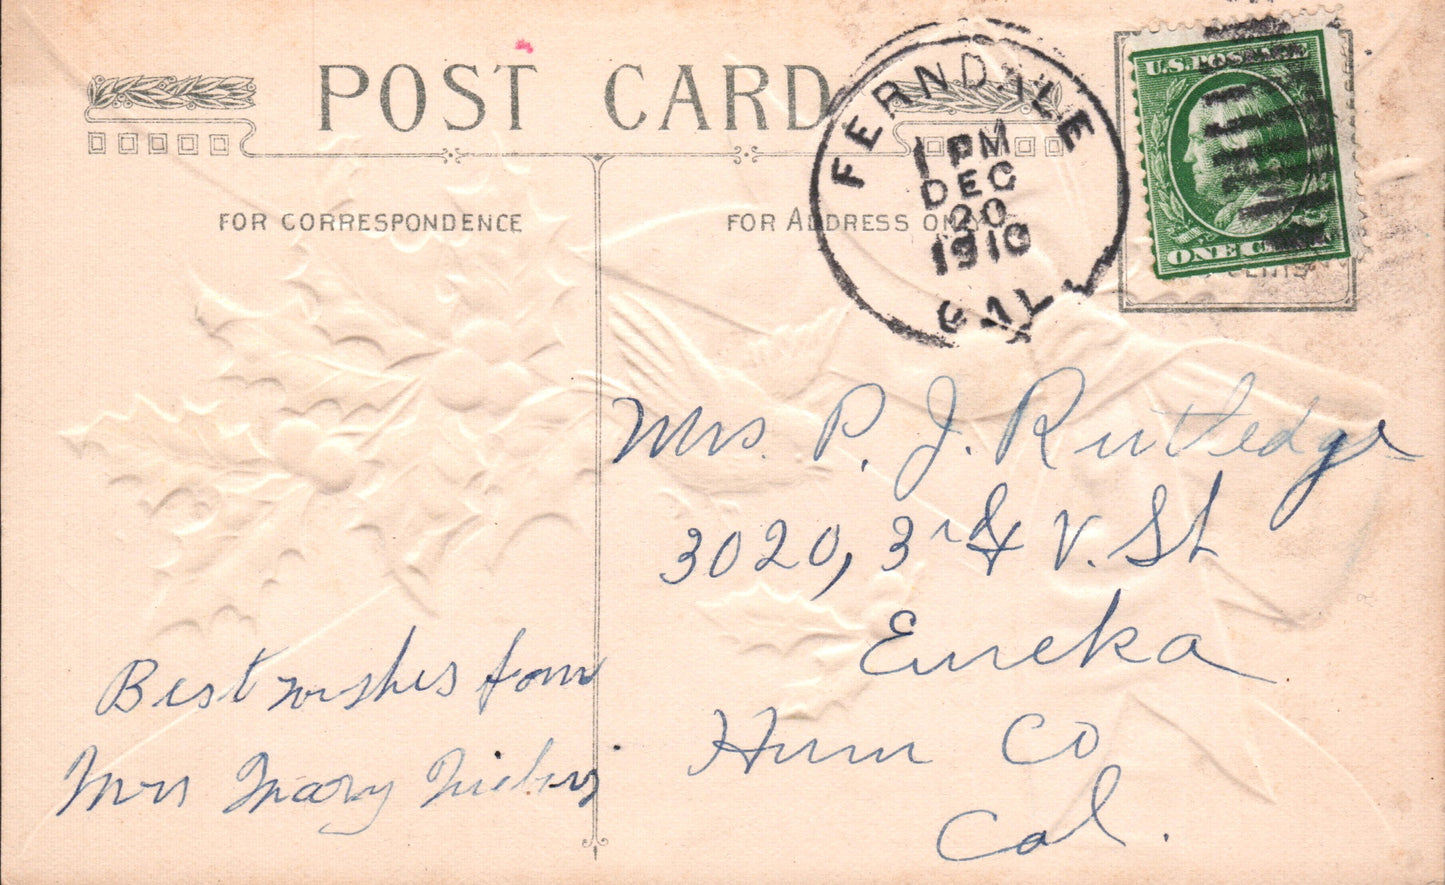 POST CARD
FOR CORRESPONDENCE
FOR ADDRESS ONLY
FERNDALE
1 PM
DEC
20
1910
CAL.
U.S. POSTAGE
ONE CENT
Mrs. P. J. Rutledge
3020, 3rd & V. St
Eureka
Hum Co
Cal.
Best wishes from
Mrs Mary